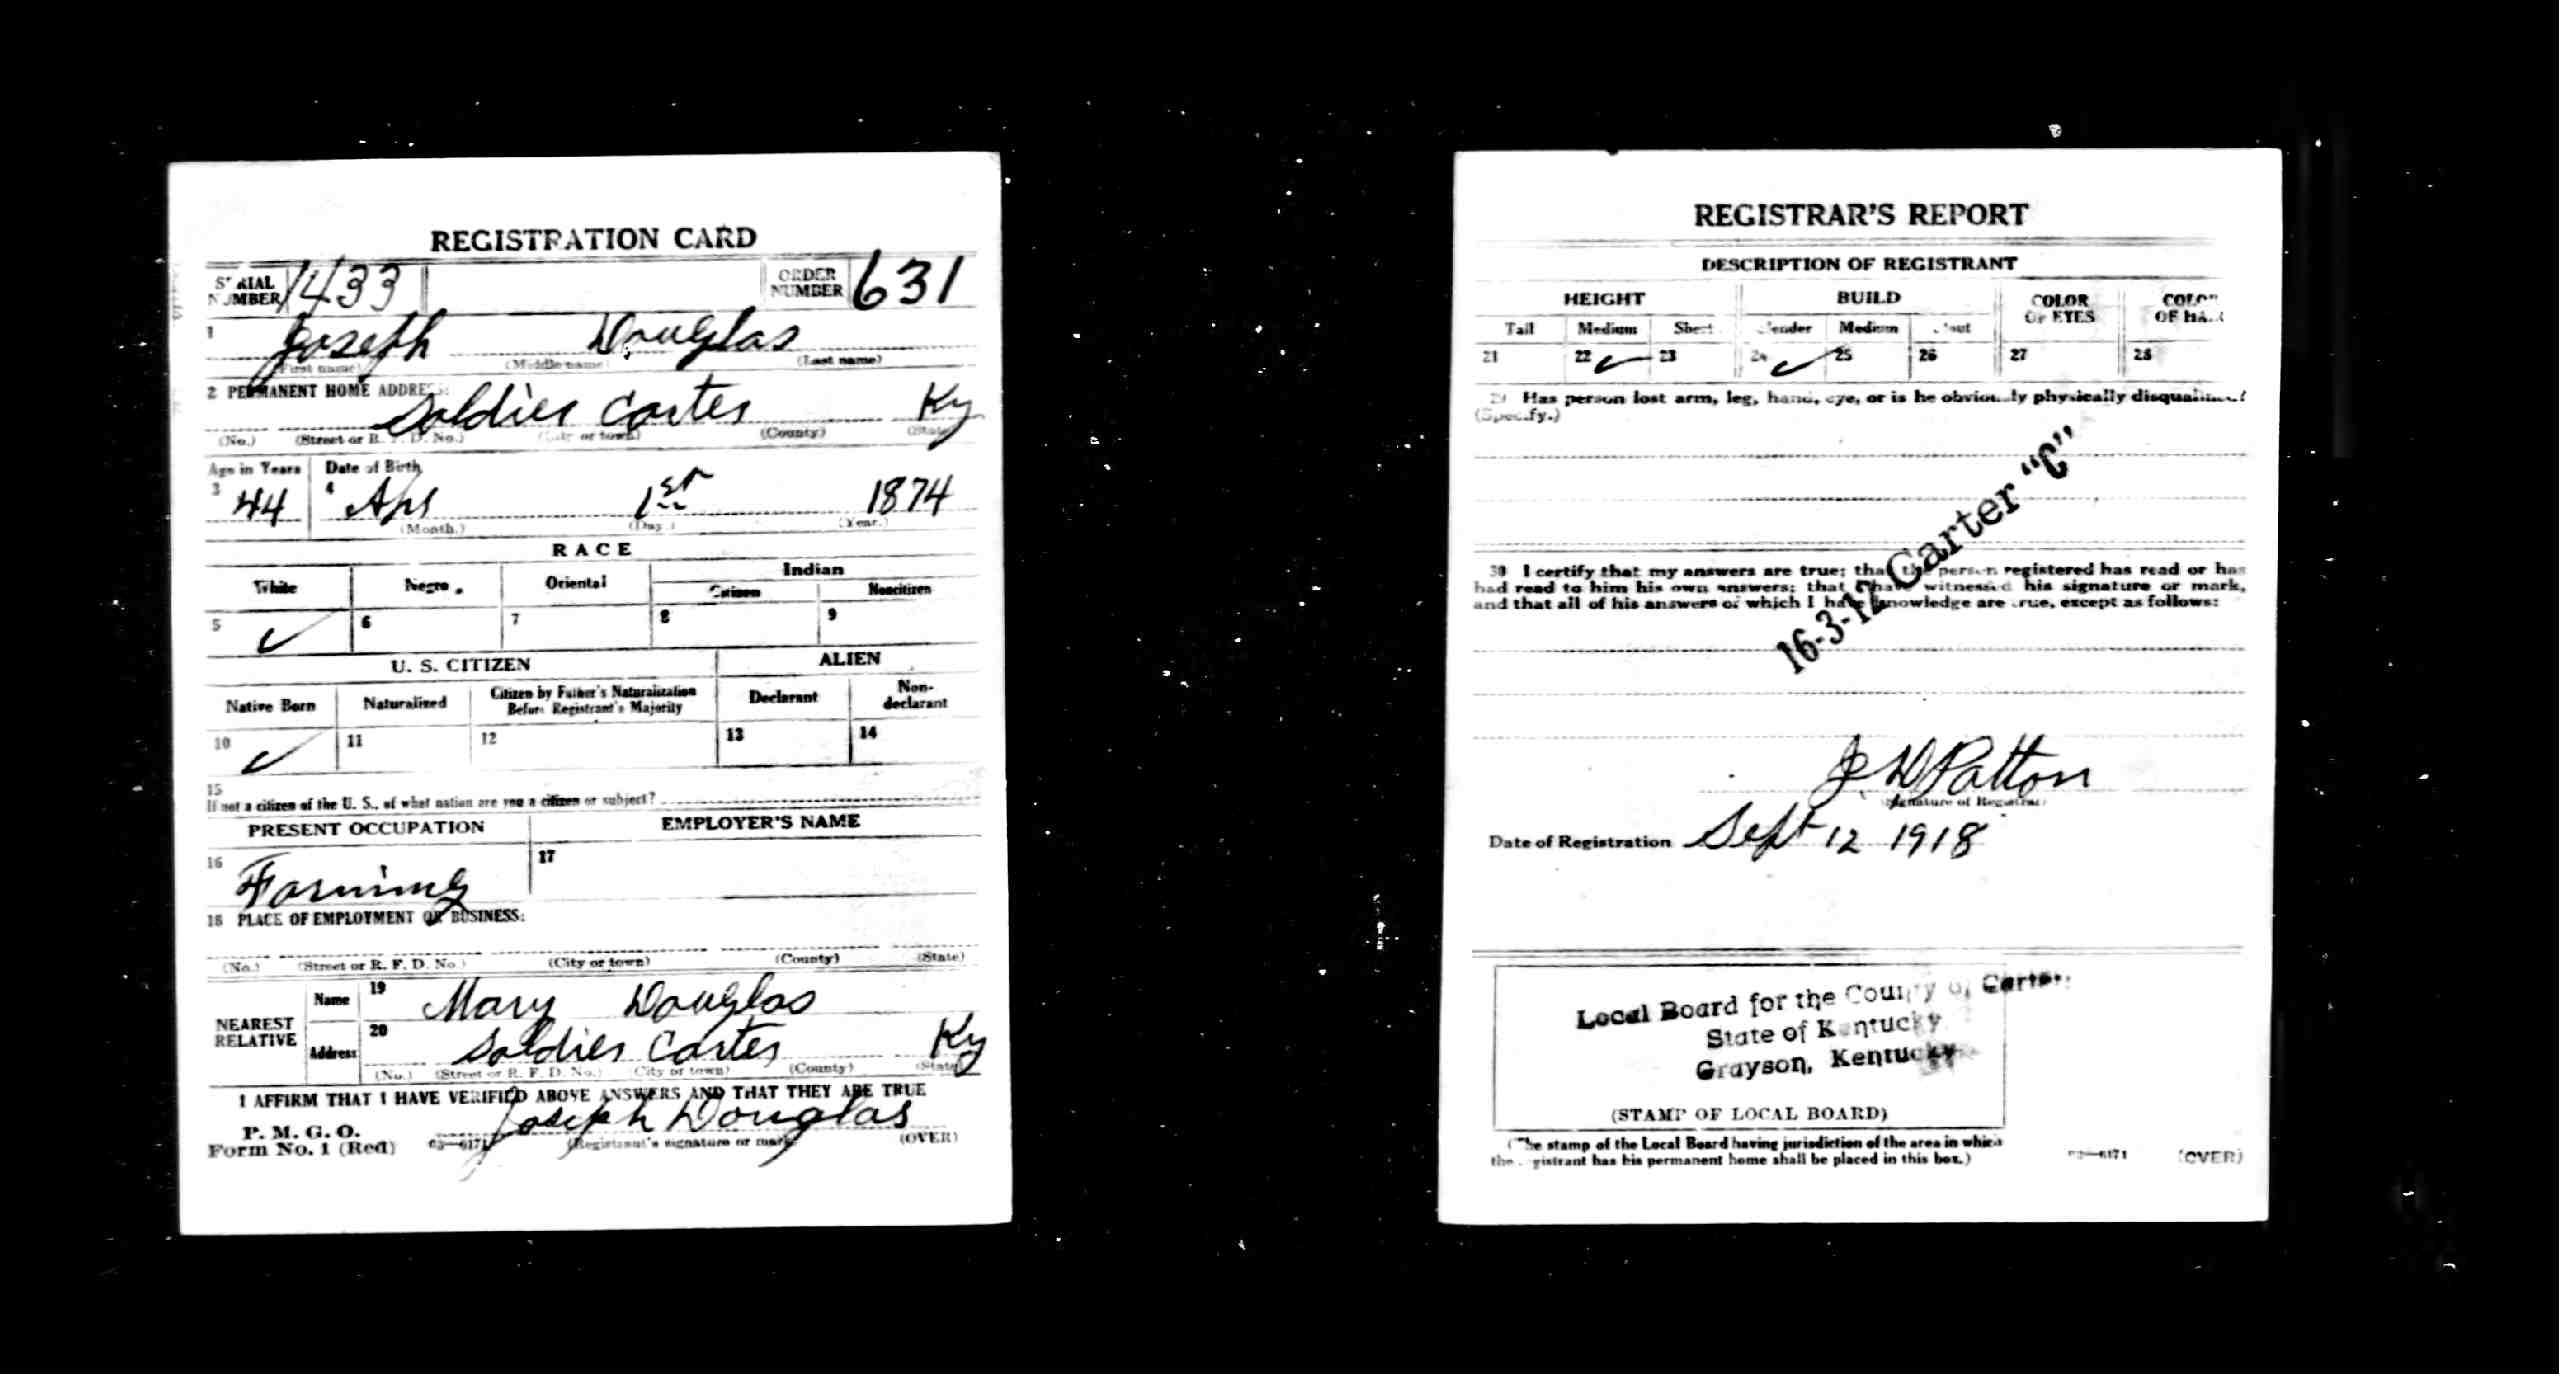 REGISTRATION CARD
SERIAL NUMBER 1433 ORDER NUMBER 631
1 Joseph Douglas
(First name) (Middle name) (Last name)
2 PERMANENT HOME ADDRESS:
Soldier Carter Ky
(No.) (Street or R. F. D. No.) (City or town) (County) (State)
Age in Years Date of Birth
3 44 4 Apr 1st 1874
(Month.) (Day.) (Year.)
RACE
White Negro Oriental Indian
Citizen Noncitizen
5 ✓ 6 7 8 9
U. S. CITIZEN ALIEN
Native Born Naturalized Citizen by Father's Naturalization Before Registrant's Majority Declarant Non-declarant
10 ✓ 11 12 13 14
15
If not a citizen of the U. S., of what nation are you a citizen or subject?
PRESENT OCCUPATION EMPLOYER'S NAME
16 Farming 17
18 PLACE OF EMPLOYMENT OR BUSINESS:
(No.) (Street or R. F. D. No.) (City or town) (County) (State)
NEAREST RELATIVE Name 19 Mary Douglas
Address 20 Soldier Carter Ky
(No.) (Street or R. F. D. No.) (City or town) (County) (State)
I AFFIRM THAT I HAVE VERIFIED ABOVE ANSWERS AND THAT THEY ARE TRUE
P. M. G. O.
Form No. 1 (Red) 03—6171 Joseph Douglas
(Registrant's signature or mark) (OVER)
REGISTRAR'S REPORT
DESCRIPTION OF REGISTRANT
HEIGHT BUILD COLOR OF EYES COLOR OF HAIR
Tall Medium Short Slender Medium Stout
21 22 ✓ 23 24 ✓ 25 26 27 28
29 Has person lost arm, leg, hand, eye, or is he obviously physically disqualified?
(Specify.)
16-3-12 Carter "C"
30 I certify that my answers are true; that the person registered has read or has
had read to him his own answers; that I have witnessed his signature or mark,
and that all of his answers of which I have knowledge are true, except as follows:
J D Patton
(Signature of Registrar)
Date of Registration Sept 12 1918
Local Board for the County of Carter,
State of Kentucky
Grayson, Kentucky
(STAMP OF LOCAL BOARD)
(The stamp of the Local Board having jurisdiction of the area in which
the registrant has his permanent home shall be placed in this box.)
03—6171 (OVER)